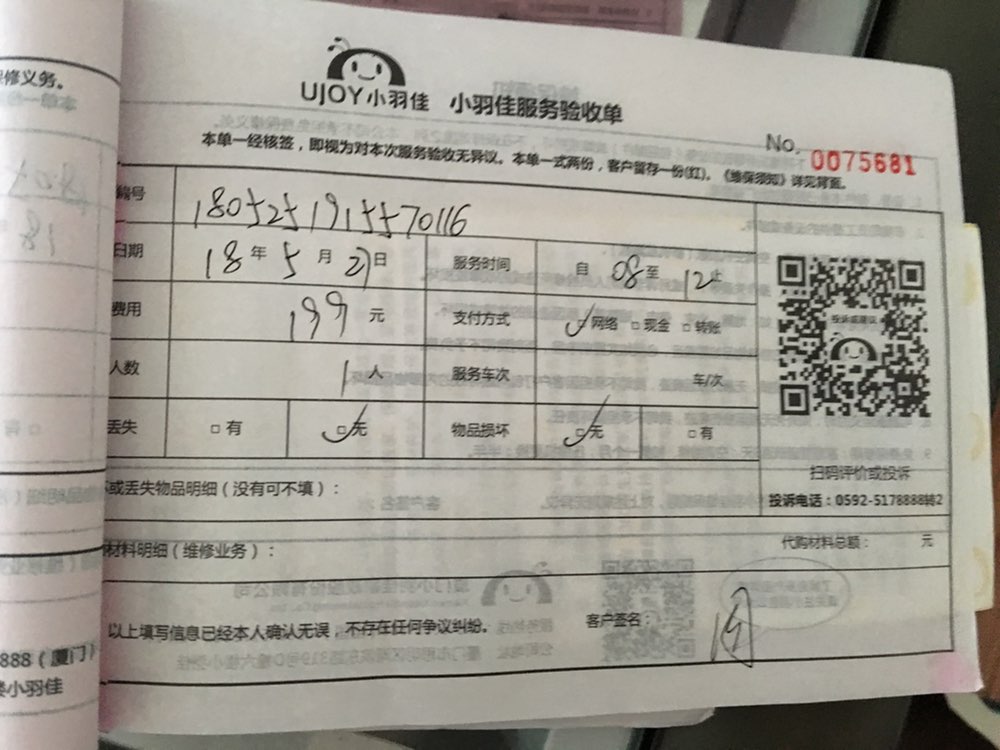 修义务。
UJOY小羽佳 小羽佳服务验收单
No. 0075681
本单一经核签，即视为对本次服务验收无异议。本单一式两份，客户留存一份(红)。《维保须知》详见背面。
编号 1805251915570116
日期 18年5月21日 服务时间 自08至12止
费用 199元 支付方式 网络 现金 转账
人数 1人 服务车次 车/次
丢失 有 无 物品损坏 无 有
投诉或建议
扫码评价或投诉
或丢失物品明细（没有可不填）：
投诉电话：0592-5178888转2
材料明细（维修业务）：
代购材料总额： 元
以上填写信息已经本人确认无误，不存在任何争议纠纷。
客户签名：
888（厦门）
小羽佳